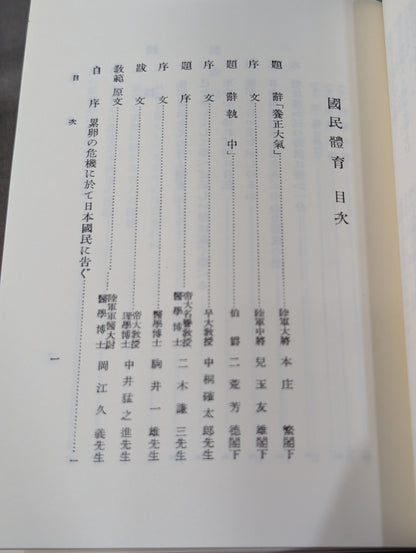 國民體育 目次
題 辭「養正大氣」……陸軍大將 本庄 繁閣下
序 文……陸軍中將 兒玉友雄閣下
題 辭「執 中」……伯爵 二荒芳德閣下
序 文……早大教授 中桐確太郎先生
題 序……帝大名譽教授 醫學博士 二木謙三先生
序 文……醫學博士 駒井一雄先生
跋 文……帝大教授 理學博士 中井猛之進先生
敎範 原文……陸軍軍醫大尉 醫學博士 岡江久義先生
自 序 累卵の危機に於て日本國民に吿ぐ……一
目 次
一